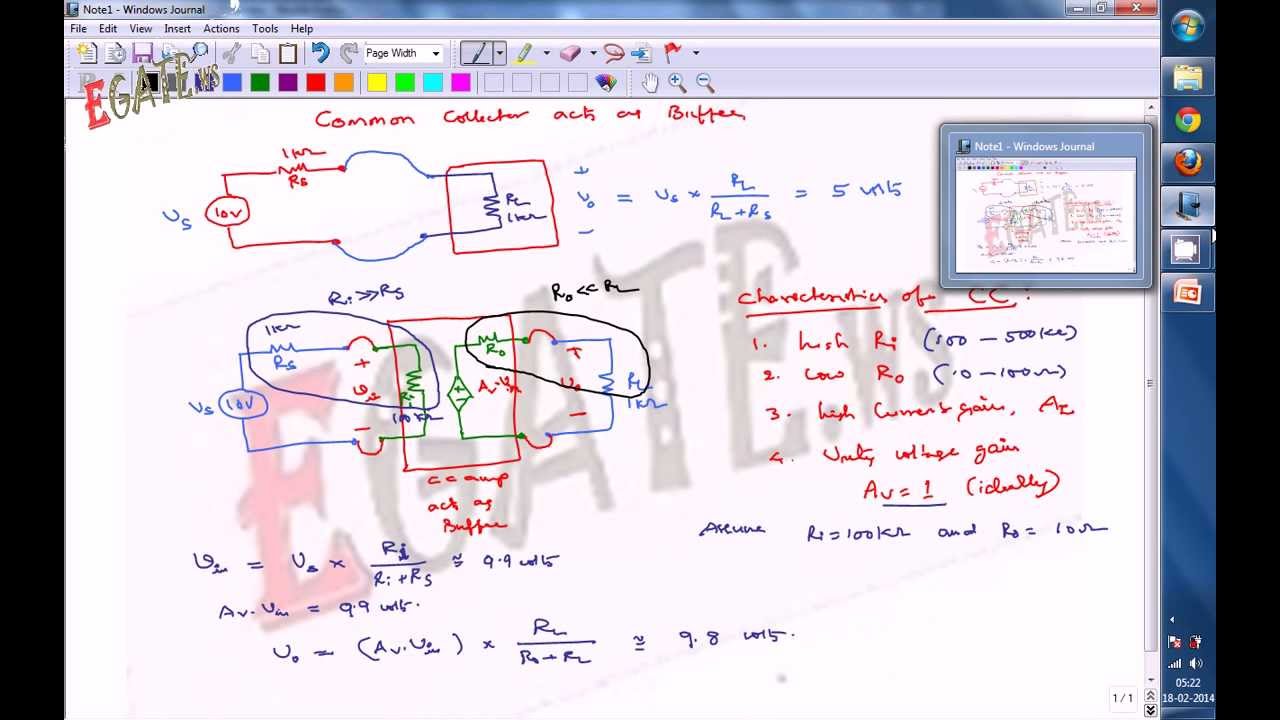 Note1 - Windows Journal
File Edit View Insert Actions Tools Help
Page Width
EGATE.WS
Common Collector acts as Buffer
1kΩ
Rs
Vs
10V
RL
1kΩ
+
Vo = Vs × RL / (RL + Rs) = 5 volts
−
Note1 - Windows Journal
Ri >> Rs
Ro << RL
1kΩ
Rs
Vs
10V
+
Vin
−
Ri
100kΩ
Ro
Av.Vin
+
Vo
−
RL
1kΩ
CC amp
act as
Buffer
Characteristics of CC :
1. high Ri (100 – 500kΩ)
2. Low Ro (10 – 100Ω)
3. high Current gain, AI
4. Unity voltage gain
Av = 1 (ideally)
Assume Ri = 100kΩ and Ro = 10Ω
Vin = Vs × Ri / (Ri + Rs) ≅ 9.9 volts
Av.Vin = 9.9 volts.
Vo = (Av.Vin) × RL / (Ro + RL) ≅ 9.8 volts.
EGATE.WS
1 / 1
05:22
18-02-2014